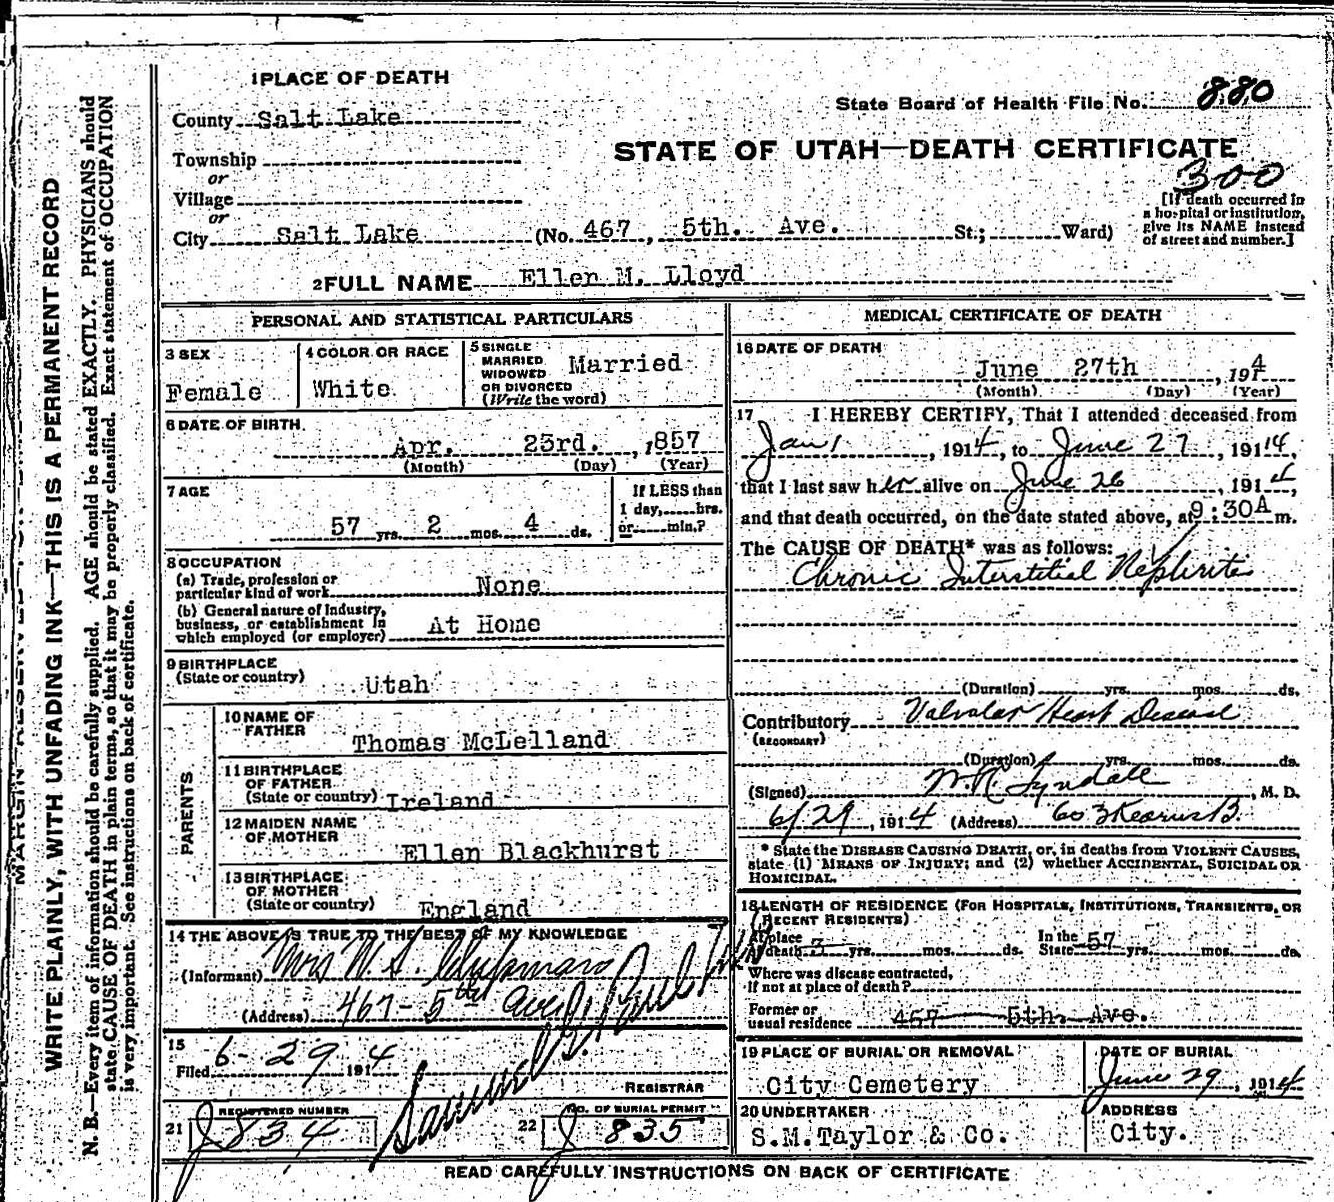 1 PLACE OF DEATH
County Salt Lake
State Board of Health File No. 880
Township
or
Village
or
City Salt Lake (No. 467, 5th. Ave. St.; Ward)
STATE OF UTAH—DEATH CERTIFICATE
300
[If death occurred in
a hospital or institution,
give its NAME instead
of street and number.]
2 FULL NAME Ellen M. Lloyd
PERSONAL AND STATISTICAL PARTICULARS
3 SEX
Female
4 COLOR OR RACE
White
5 SINGLE
MARRIED
WIDOWED
OR DIVORCED
(Write the word)
Married
6 DATE OF BIRTH
Apr. 23rd., 1857
(Month) (Day) (Year)
7 AGE
57 yrs. 2 mos. 4 ds.
If LESS than
1 day, hrs.
or min.?
8 OCCUPATION
(a) Trade, profession or
particular kind of work None
(b) General nature of Industry,
business, or establishment in
which employed (or employer) At Home
9 BIRTHPLACE
(State or country) Utah
PARENTS
10 NAME OF
FATHER
Thomas McLelland
11 BIRTHPLACE
OF FATHER
(State or country) Ireland
12 MAIDEN NAME
OF MOTHER
Ellen Blackhurst
13 BIRTHPLACE
OF MOTHER
(State or country) England
14 THE ABOVE IS TRUE TO THE BEST OF MY KNOWLEDGE
(Informant) Mrs W. S.
(Address) 467 - 5th Ave
15
Filed 6-29 1914
Samuel G. Paul
REGISTRAR
REGISTERED NUMBER
21 J 834
NO. OF BURIAL PERMIT
22 J 835
MEDICAL CERTIFICATE OF DEATH
16 DATE OF DEATH
June 27th, 1914
(Month) (Day) (Year)
17 I HEREBY CERTIFY, That I attended deceased from
Jan 1, 1914, to June 27, 19114,
that I last saw her alive on June 26, 1914,
and that death occurred, on the date stated above, at 9:30A m.
The CAUSE OF DEATH* was as follows:
Chronic Interstitial Nephritis
(Duration) yrs. mos. ds.
Contributory Valvular Heart Disease
(SECONDARY)
(Duration) yrs. mos. ds.
(Signed) W.R. Tyndale, M. D.
6/29, 1914 (Address) 603 Kearns B.
* State the DISEASE CAUSING DEATH, or, in deaths from VIOLENT CAUSES,
state (1) MEANS OF INJURY; and (2) whether ACCIDENTAL, SUICIDAL OR
HOMICIDAL.
18 LENGTH OF RESIDENCE (FOR HOSPITALS, INSTITUTIONS, TRANSIENTS, OR
RECENT RESIDENTS)
At place
of death 3 yrs. mos. ds.
In the
State 57 yrs. mos. ds.
Where was disease contracted,
If not at place of death?
Former or
usual residence 467 5th. Ave.
19 PLACE OF BURIAL OR REMOVAL
City Cemetery
DATE OF BURIAL
June 29, 1914
20 UNDERTAKER
S.M.Taylor & Co.
ADDRESS
City.
READ CAREFULLY INSTRUCTIONS ON BACK OF CERTIFICATE
WRITE PLAINLY, WITH UNFADING INK—THIS IS A PERMANENT RECORD
N. B.—Every item of information should be carefully supplied. AGE should be stated EXACTLY. PHYSICIANS should
state CAUSE OF DEATH in plain terms, so that it may be properly classified. Exact statement of OCCUPATION
is very important. See instructions on back of certificate.